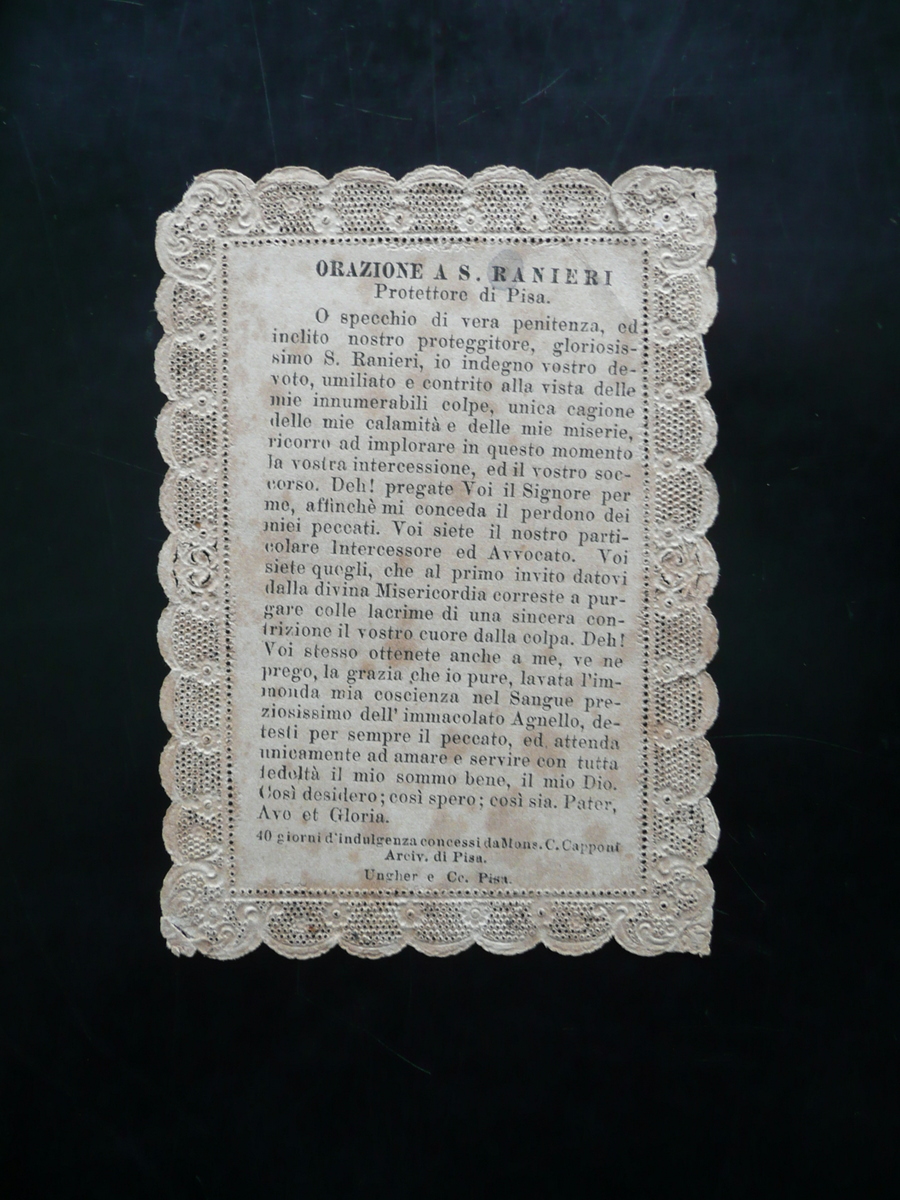 ORAZIONE A S. RANIERI
Protettore di Pisa.
O specchio di vera penitenza, ed
inclito nostro proteggitore, gloriosis-
simo S. Ranieri, io indegno vostro de-
voto, umiliato e contrito alla vista delle
mie innumerabili colpe, unica cagione
delle mie calamità e delle mie miserie,
ricorro ad implorare in questo momento
la vostra intercessione, ed il vostro soc-
corso. Deh! pregate Voi il Signore per
me, affinchè mi conceda il perdono dei
miei peccati. Voi siete il nostro parti-
colare Intercessore ed Avvocato. Voi
siete quegli, che al primo invito datovi
dalla divina Misericordia correste a pur-
gare colle lacrime di una sincera con-
trizione il vostro cuore dalla colpa. Deh!
Voi stesso ottenete anche a me, ve ne
prego, la grazia che io pure, lavata l'im-
monda mia coscienza nel Sangue pre-
ziosissimo dell' immacolato Agnello, de-
testi per sempre il peccato, ed attenda
unicamente ad amare e servire con tutta
fedeltà il mio sommo bene, il mio Dio.
Così desidero; così spero; così sia. Pater,
Ave et Gloria.
40 giorni d'indulgenza concessi da Mons. C. Capponi
Arciv. di Pisa.
Ungher e Cc. Pisa.